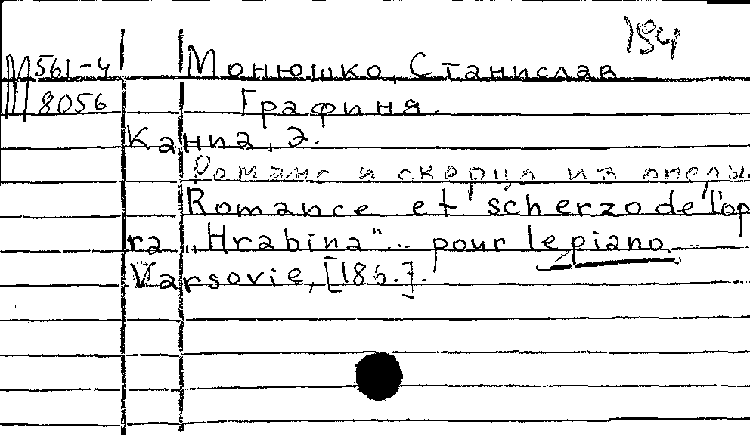 194
М 561-4 Монюшко, Станислав
8056 Графиня.
Каниа, Э.
Романс и скерцо из оперы
Romance et scherzo de l'op
ra „Hrabina"... pour le piano
Varsovie, [186.].